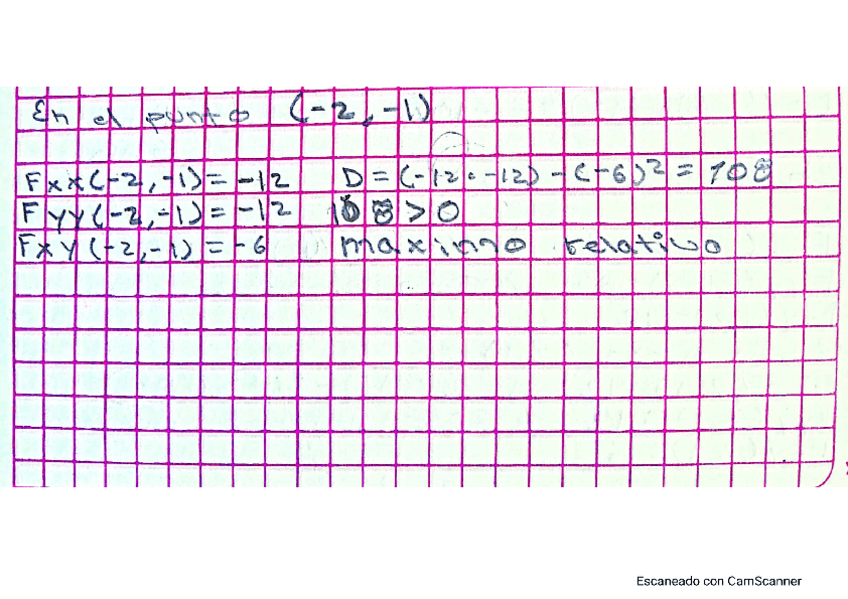 En el punto (-2, -1)
Fxx(-2, -1) = -12 D = (-12 · -12) - (-6)² = 108
Fyy(-2, -1) = -12 108 > 0
Fxy(-2, -1) = -6 maximo relativo
Escaneado con CamScanner